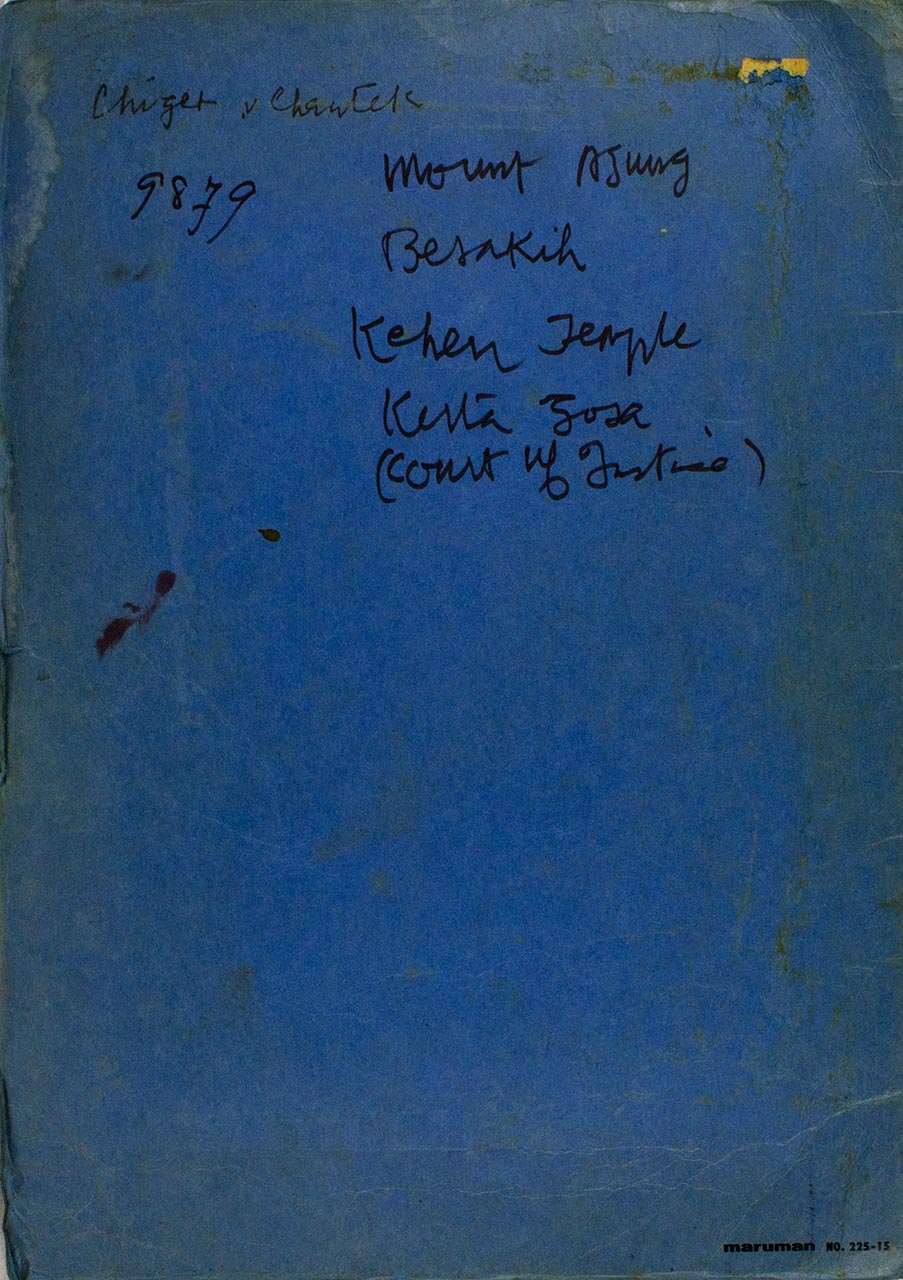 Chiger v Chantek
9879
Mount Agung
Besakih
Kehen Temple
Kerta Gosa
(Court of Justice)
maruman NO. 225-15